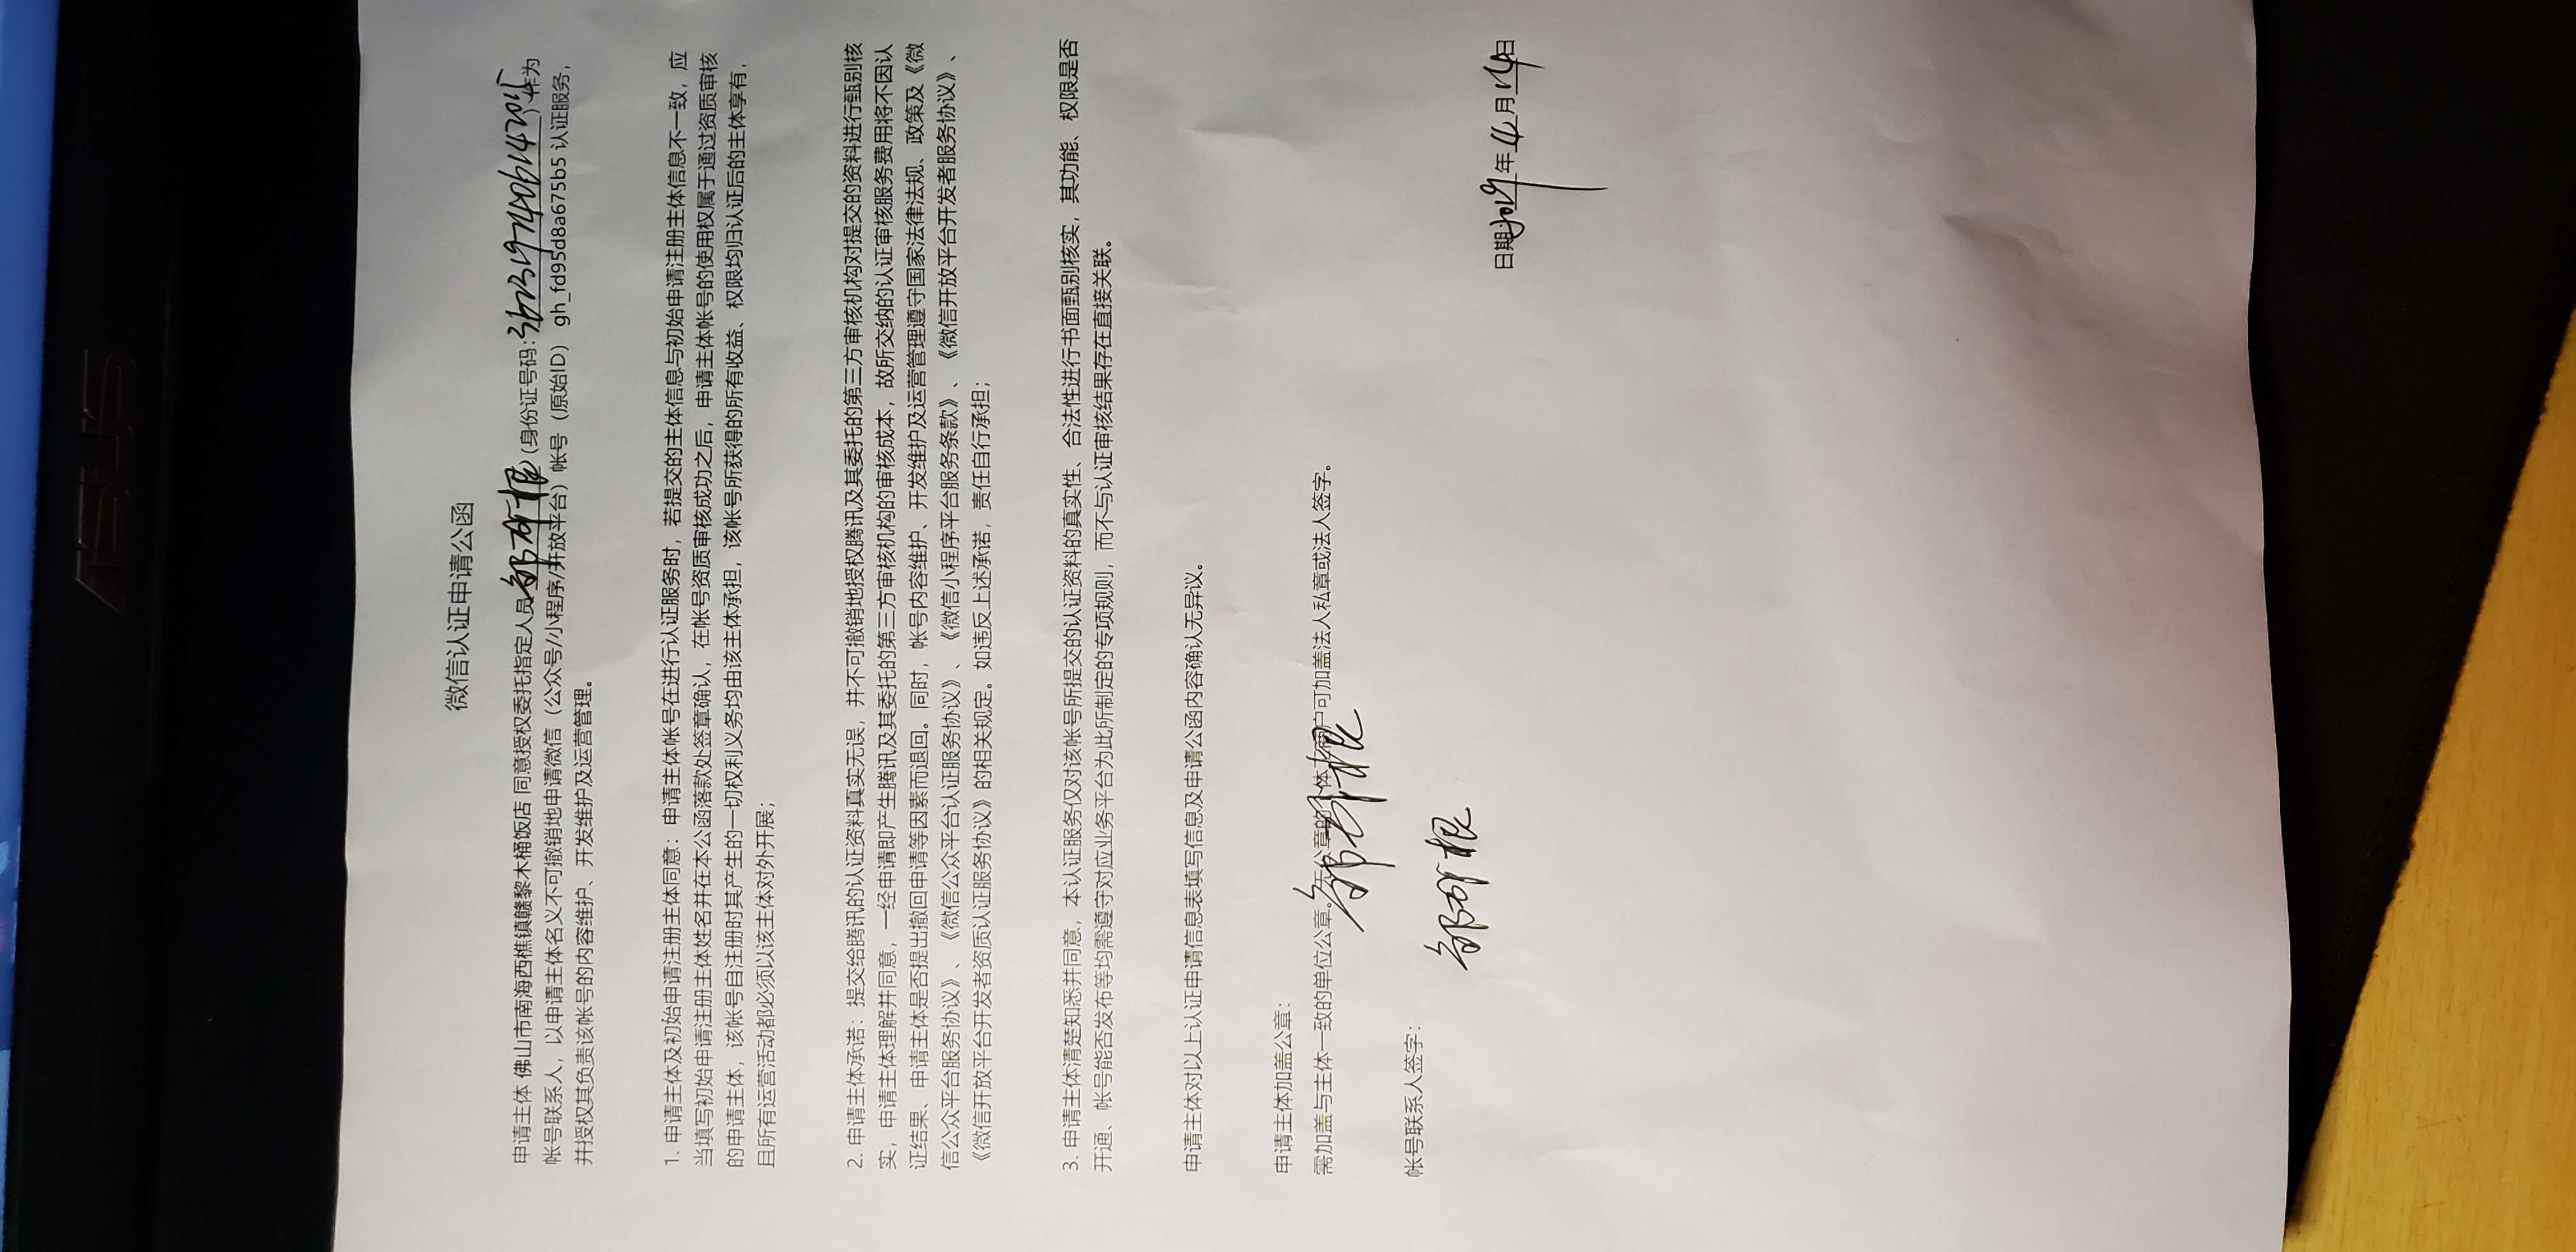 ASUS
微信认证申请公函
申请主体 佛山市南海西樵镇赣黎木桶饭店 同意授权委托指定人员 邹 根 (身份证号码: ) 作为
帐号联系人，以申请主体名义不可撤销地申请微信（公众号/小程序/开放平台）帐号（原始ID） gh_fd95d8a675b5 认证服务，
并授权其负责该帐号的内容维护、开发维护及运营管理。
1. 申请主体及初始申请注册主体同意：申请主体帐号在进行认证服务时，若提交的主体信息与初始申请注册主体信息不一致，应
当填写初始申请注册主体姓名并在本公函落款处签章确认，在帐号资质审核成功之后，申请主体帐号的使用权属于通过资质审核
的申请主体，该帐号自注册时其产生的一切权利义务均由该主体承担，该帐号所获得的所有收益、权限均归认证后的主体享有，
且所有运营活动都必须以该主体对外开展；
2. 申请主体承诺：提交给腾讯的认证资料真实无误，并不可撤销地授权腾讯及其委托的第三方审核机构对提交的资料进行甄别核
实，申请主体理解并同意，一经申请即产生腾讯及其委托的第三方审核机构的审核成本，故所交纳的认证审核服务费用将不因认
证结果、申请主体是否提出撤回申请等因素而退回。同时，帐号内容维护、开发维护及运营管理遵守国家法律法规、政策及《微
信公众平台服务协议》、《微信公众平台认证服务协议》、《微信小程序平台服务条款》、《微信开放平台开发者服务协议》、
《微信开放平台开发者资质认证服务协议》的相关规定。如违反上述承诺，责任自行承担；
3. 申请主体清楚知悉并同意，本认证服务仅对该帐号所提交的认证资料的真实性、合法性进行书面甄别核实，其功能、权限是否
开通、帐号能否发布等均需遵守对应业务平台为此所制定的专项规则，而不与认证审核结果存在直接关联。
申请主体对以上认证申请信息表填写信息及申请公函内容确认无异议。
申请主体加盖公章：
需加盖与主体一致的单位公章。无公章的个体工商户可加盖法人私章或法人签字。
邹 根
帐号联系人签字：
邹 根
日期 2019 年 4 月 14 日